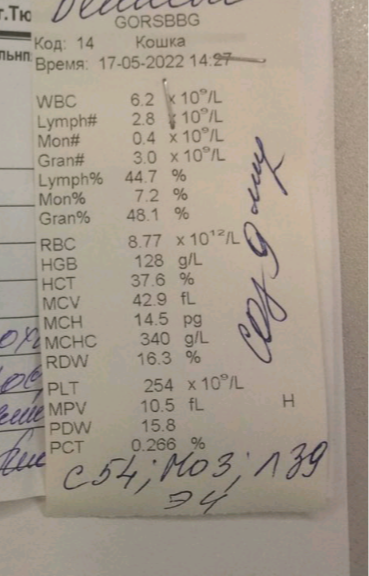 г.Тю
GORSBBG
Код: 14 Кошка
Время: 17-05-2022 14:27
WBC 6.2 x 10⁹/L
Lymph# 2.8 x 10⁹/L
Mon# 0.4 x 10⁹/L
Gran# 3.0 x 10⁹/L
Lymph% 44.7 %
Mon% 7.2 %
Gran% 48.1 %
RBC 8.77 x 10¹²/L
HGB 128 g/L
HCT 37.6 %
MCV 42.9 fL
MCH 14.5 pg
MCHC 340 g/L
RDW 16.3 %
PLT 254 x 10⁹/L
MPV 10.5 fL H
PDW 15.8
PCT 0.266 %
СОЭ 9 мм
С54; М03; Л39
Э4